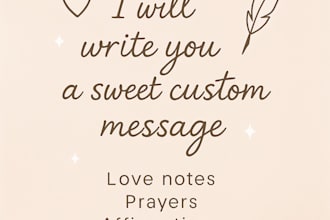 I will
write you
a sweet custom
message
Love notes
Prayers